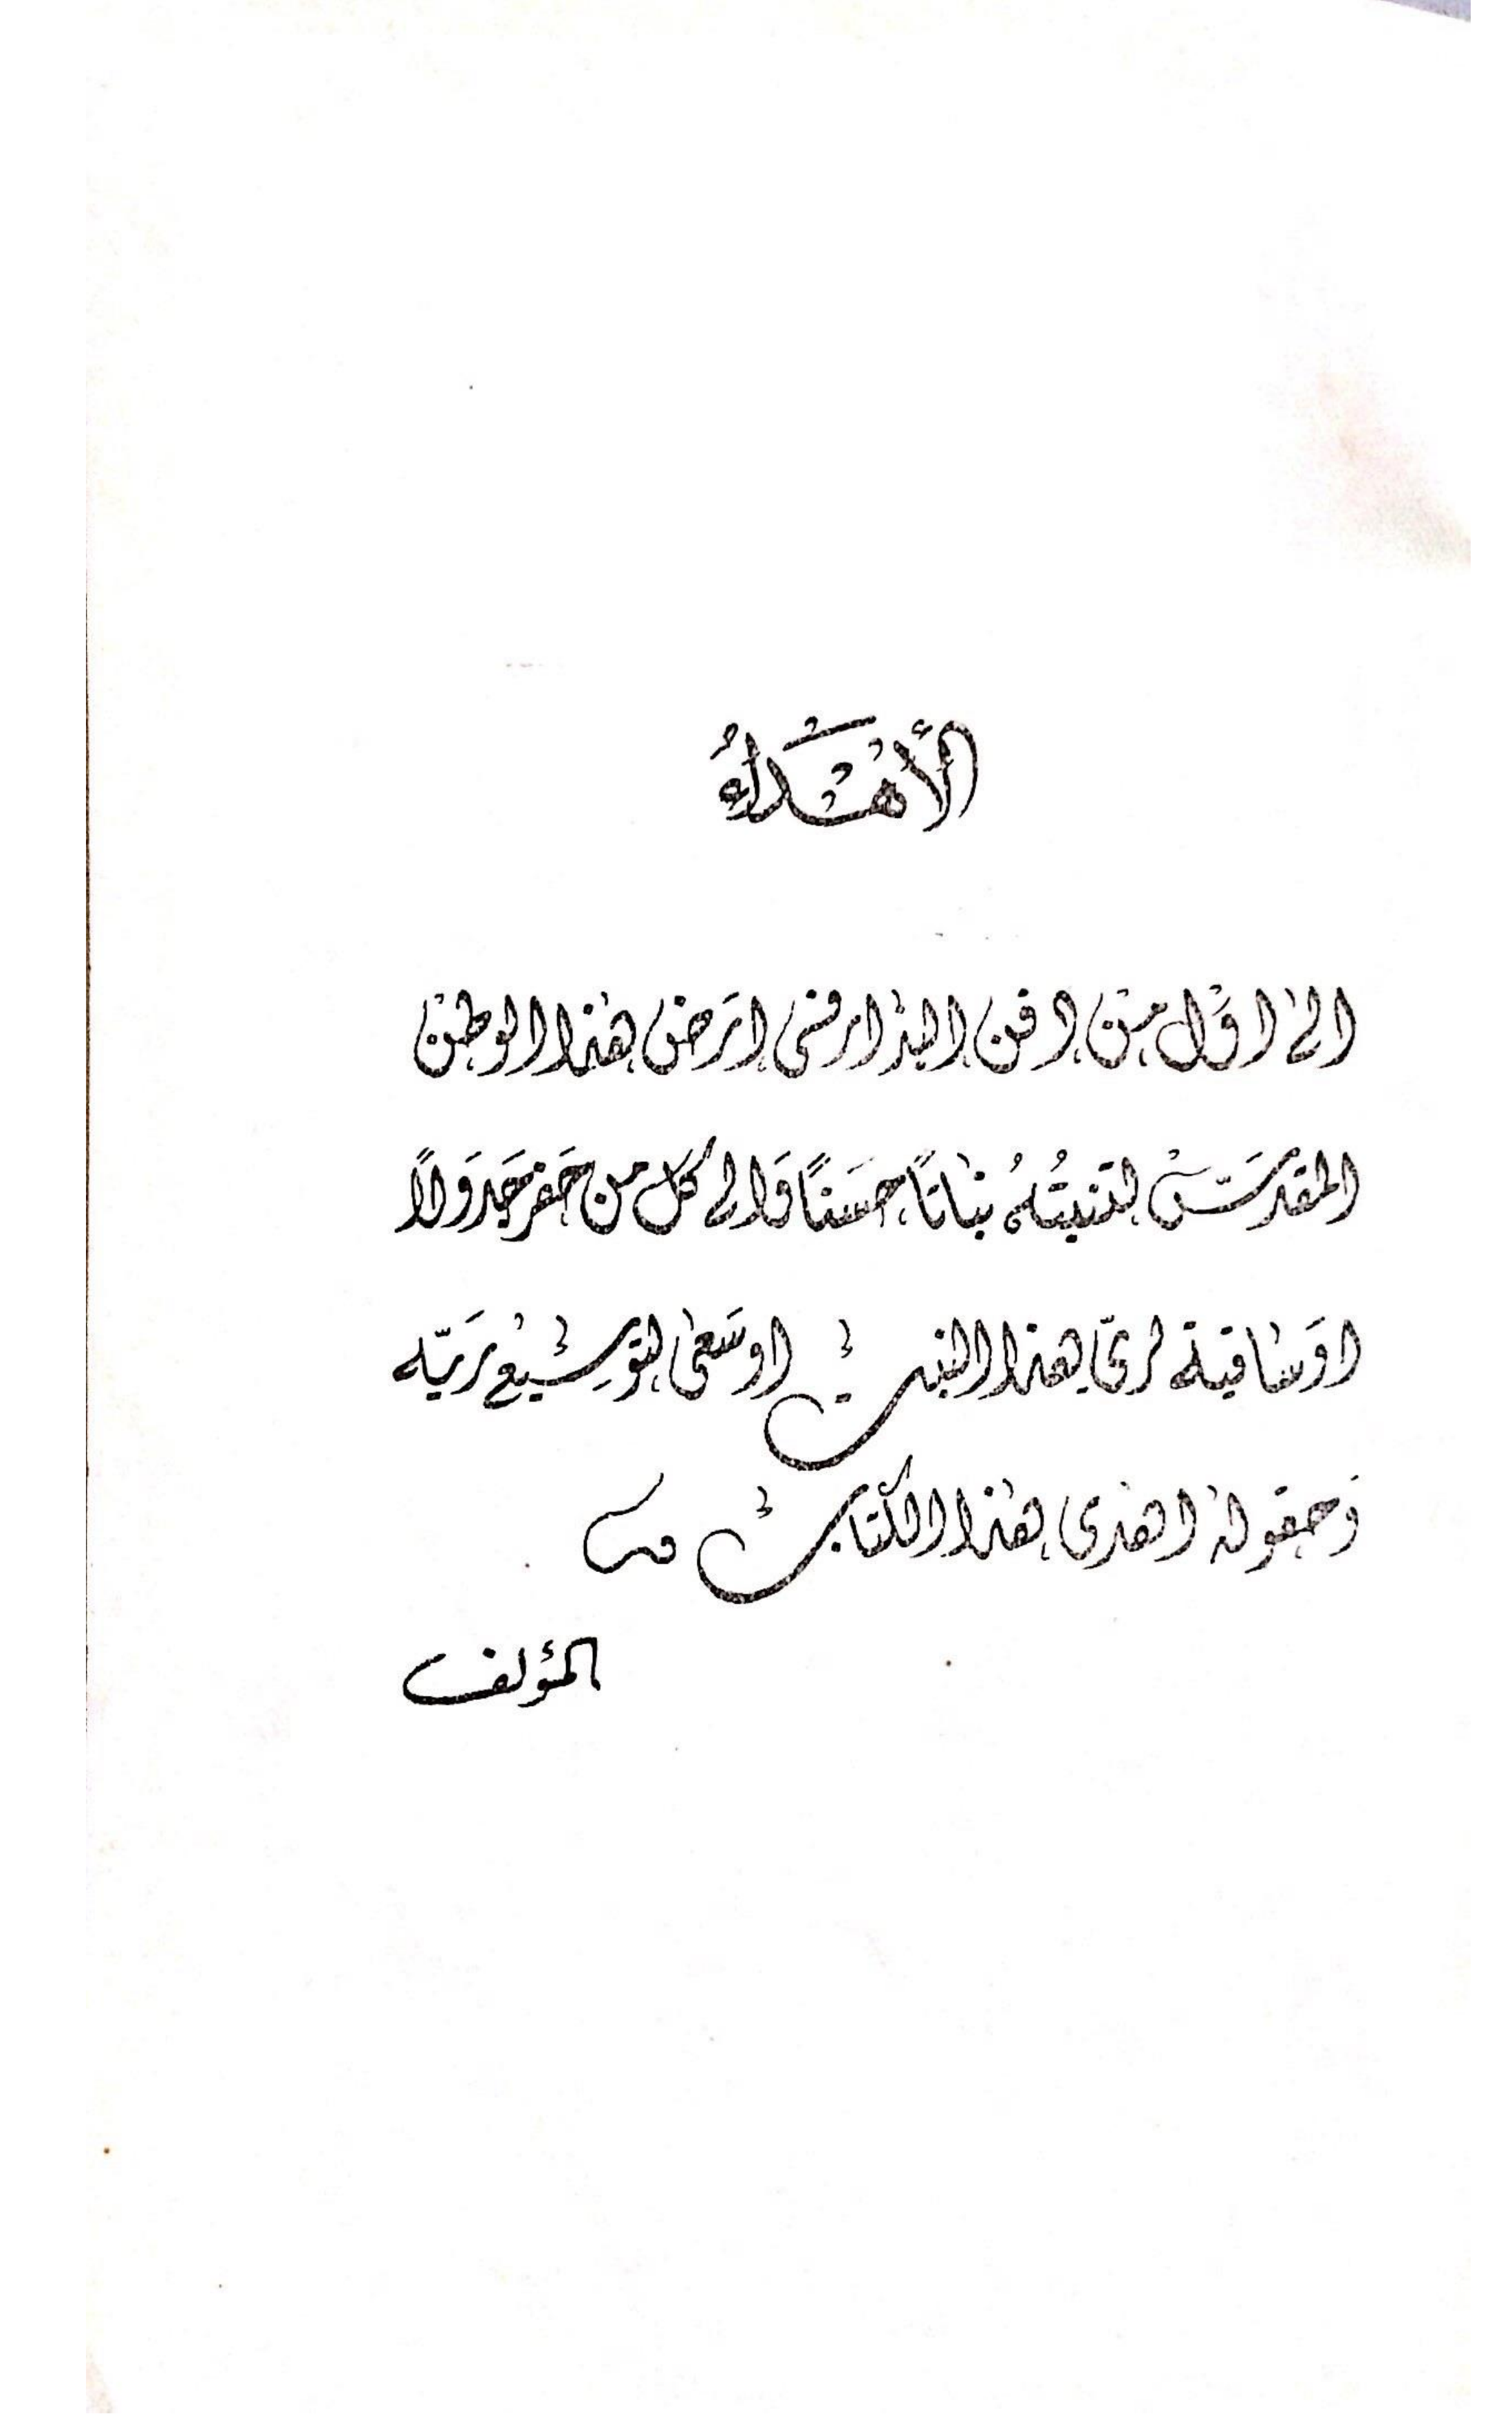 الأهداء
الى اوّل من دفن البذار فى ارض هذا الوطن
المقدس لتنبتُهُ نباتاً حسَناً وَالى كل من حَفر جَدوَلاً
اوَ ساقية لريّ هذا النبت اوسَعى لتوسِيع رَيّه
وَحقوله اهدى هذا الكتاب
المؤلف